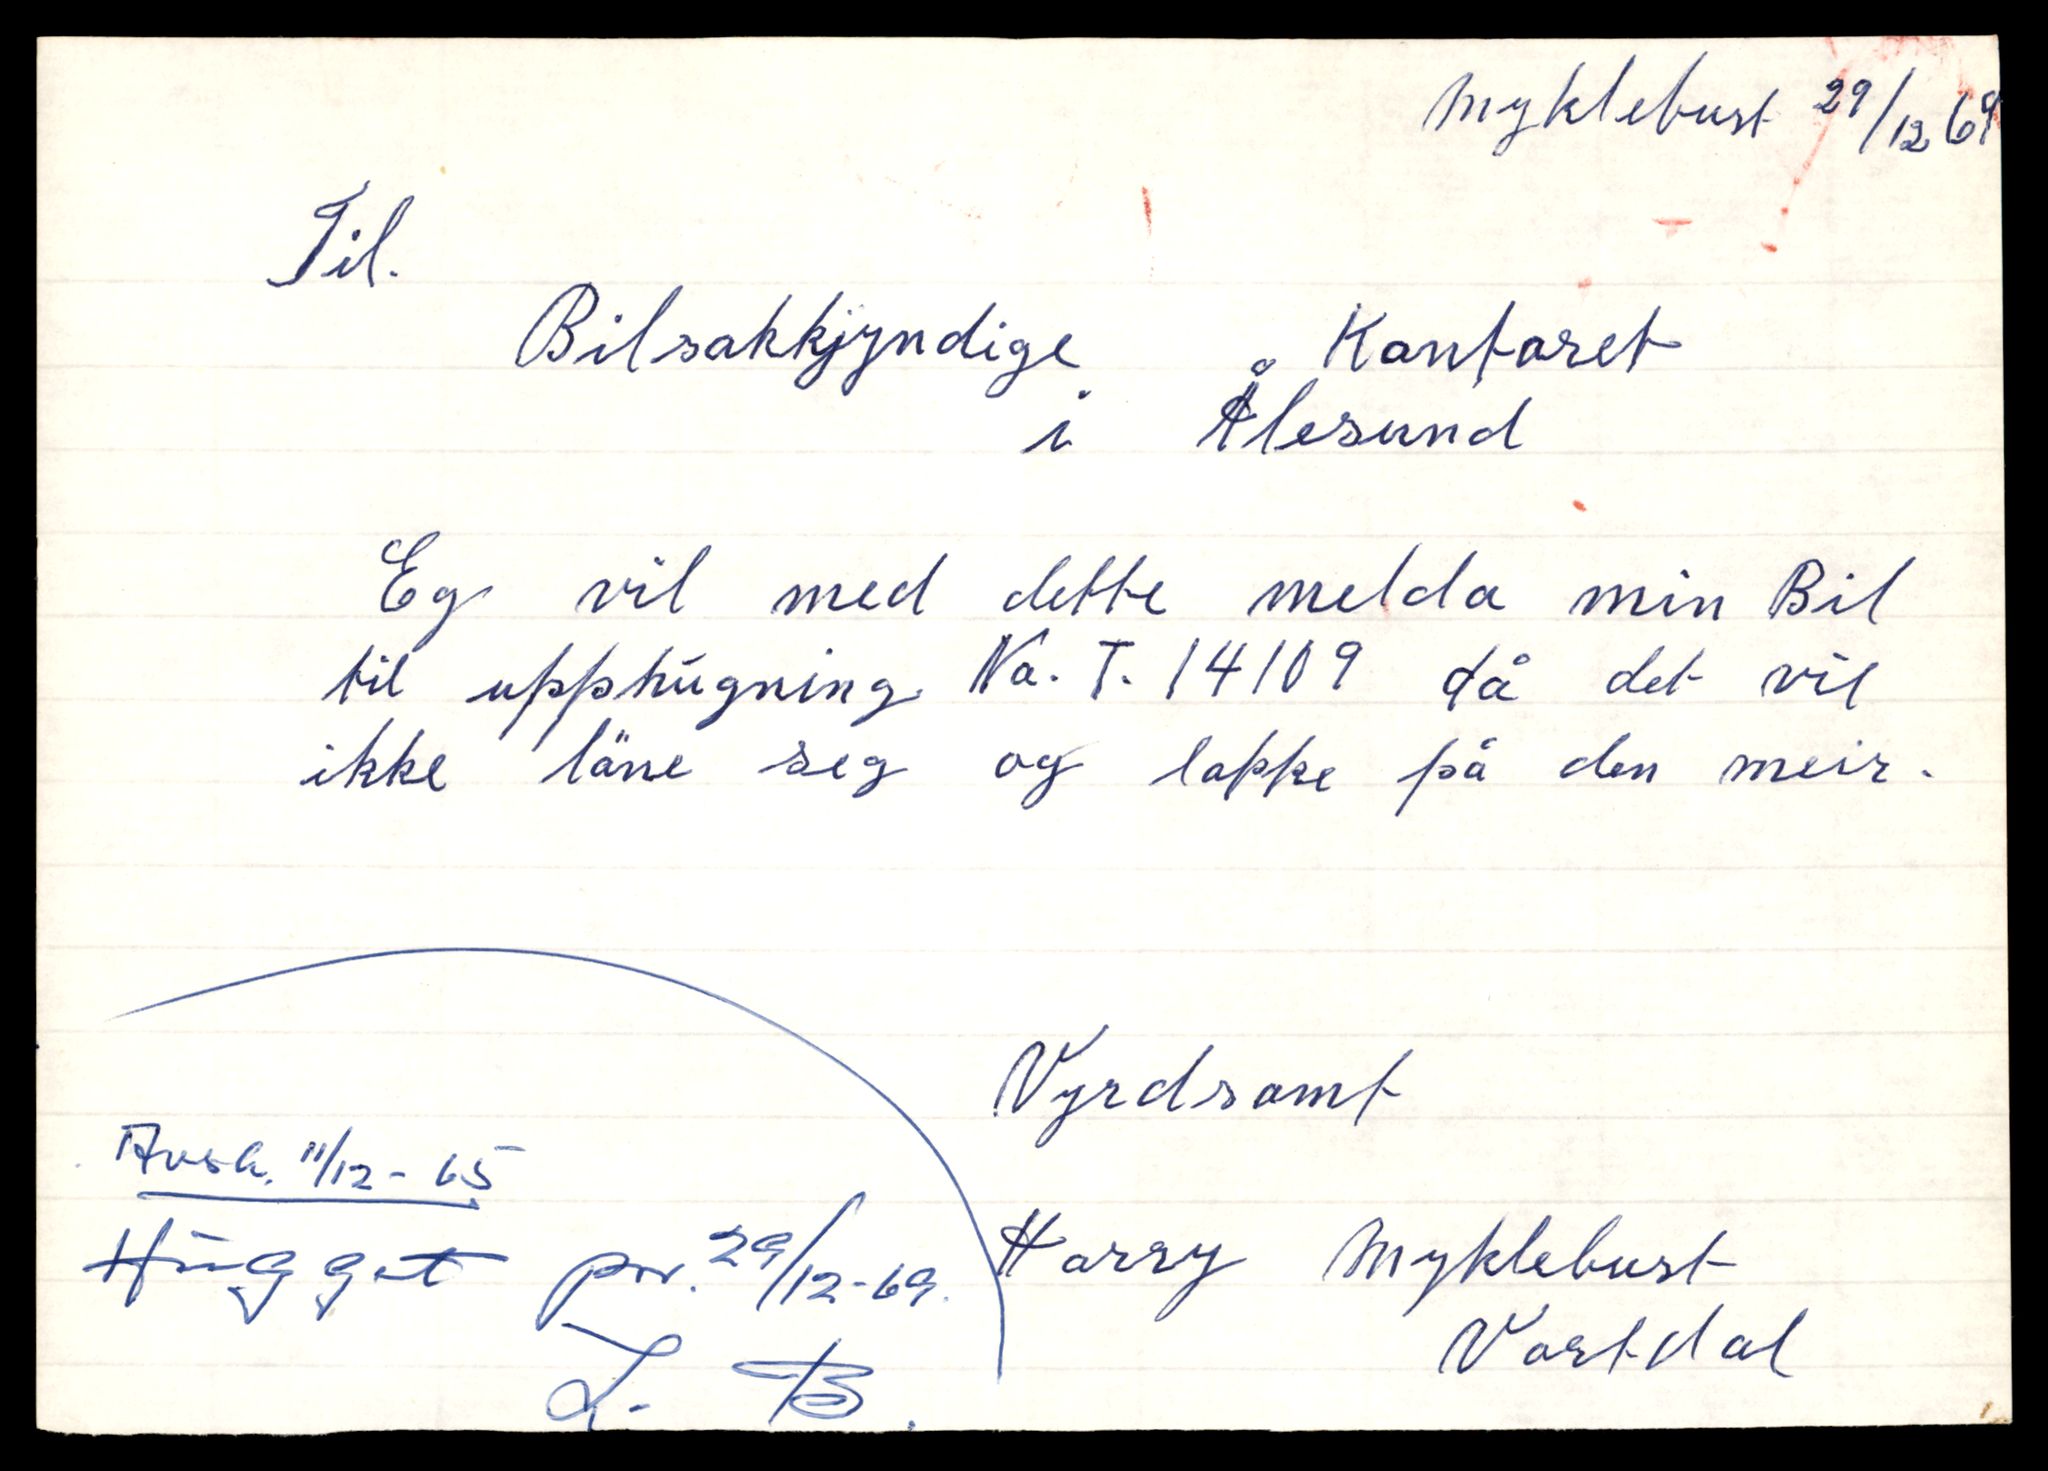 Myklebust 29/12 69
Til.
Bilsakkjyndige Kontoret
i Ålesund
Eg vil med dette melda min Bil
til upphugning No. T. 14109 då det vil
ikke löne seg og loppe på den meir.
Vyrdsamt
Avsk. 11/12-65
Hugget pr. 29/12-69.
Harry Myklebust
Vartdal
L. B.